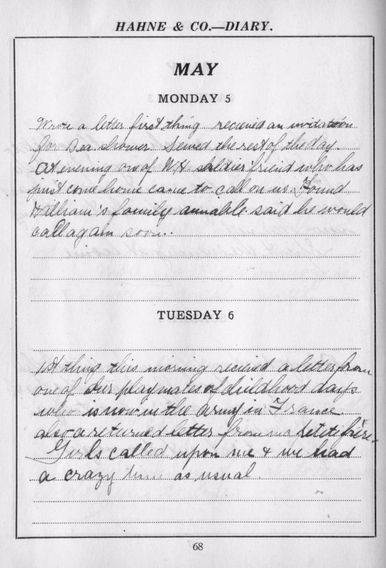 HAHNE & CO.—DIARY.
MAY
MONDAY 5
Wrote a letter first thing recieved an invitation
for Bea shower. Sewed the rest of the day.
At evening one of soldier friend who has
just come home came to call on us. Found
family said he would
call again soon..
TUESDAY 6
1st thing this morning recieved a letter from
one of our playmates of childhood days
who is now in the army in France
also a returned letter from ma petite frère.
Girls called upon me & we had
a crazy time as usual.
68